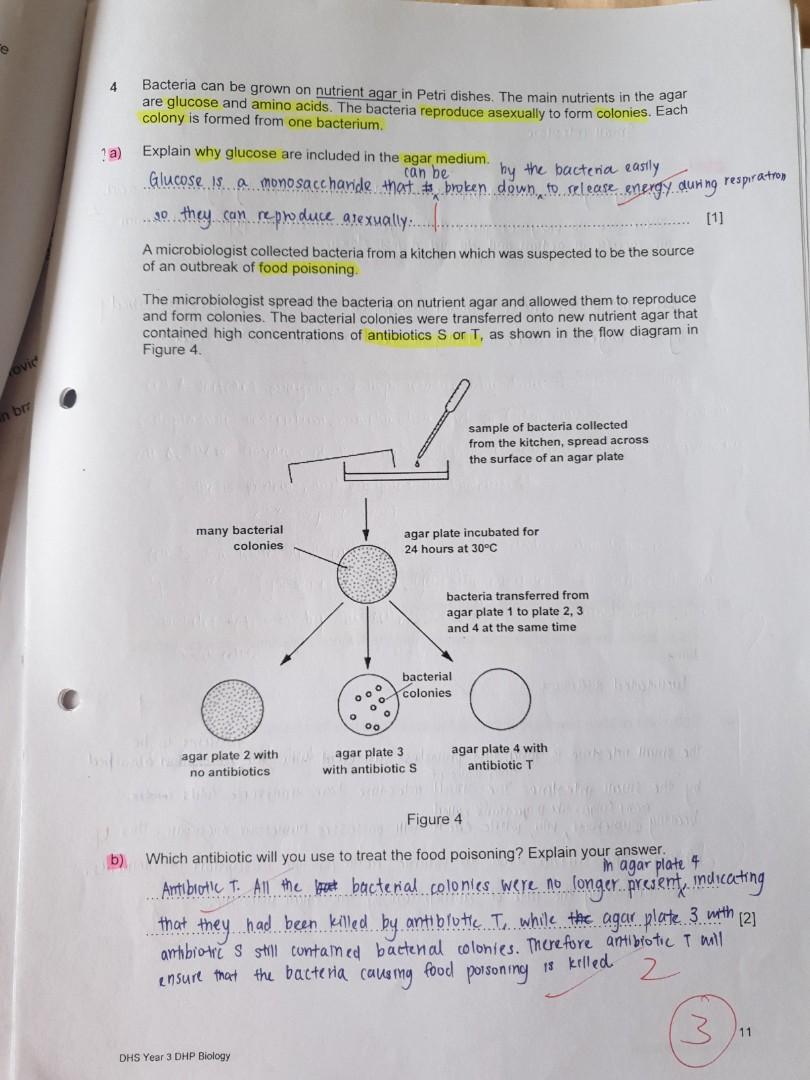 4 Bacteria can be grown on nutrient agar in Petri dishes. The main nutrients in the agar
are glucose and amino acids. The bacteria reproduce asexually to form colonies. Each
colony is formed from one bacterium.
a) Explain why glucose are included in the agar medium.
can be by the bacteria easily
Glucose is a monosaccharide that broken down to release energy during respiration
so they can reproduce asexually. [1]
A microbiologist collected bacteria from a kitchen which was suspected to be the source
of an outbreak of food poisoning.
The microbiologist spread the bacteria on nutrient agar and allowed them to reproduce
and form colonies. The bacterial colonies were transferred onto new nutrient agar that
contained high concentrations of antibiotics S or T, as shown in the flow diagram in
Figure 4.
sample of bacteria collected
from the kitchen, spread across
the surface of an agar plate
many bacterial
colonies
agar plate incubated for
24 hours at 30°C
bacteria transferred from
agar plate 1 to plate 2, 3
and 4 at the same time
bacterial
colonies
agar plate 2 with
no antibiotics
agar plate 3
with antibiotic S
agar plate 4 with
antibiotic T
Figure 4
b) Which antibiotic will you use to treat the food poisoning? Explain your answer.
in agar plate 4
Antibiotic T. All the bacterial colonies were no longer present, indicating
that they had been killed by antibiotic T, while agar plate 3 with [2]
antibiotic S still contained bacterial colonies. Therefore antibiotic T will
ensure that the bacteria causing food poisoning is killed
2
3
11
DHS Year 3 DHP Biology